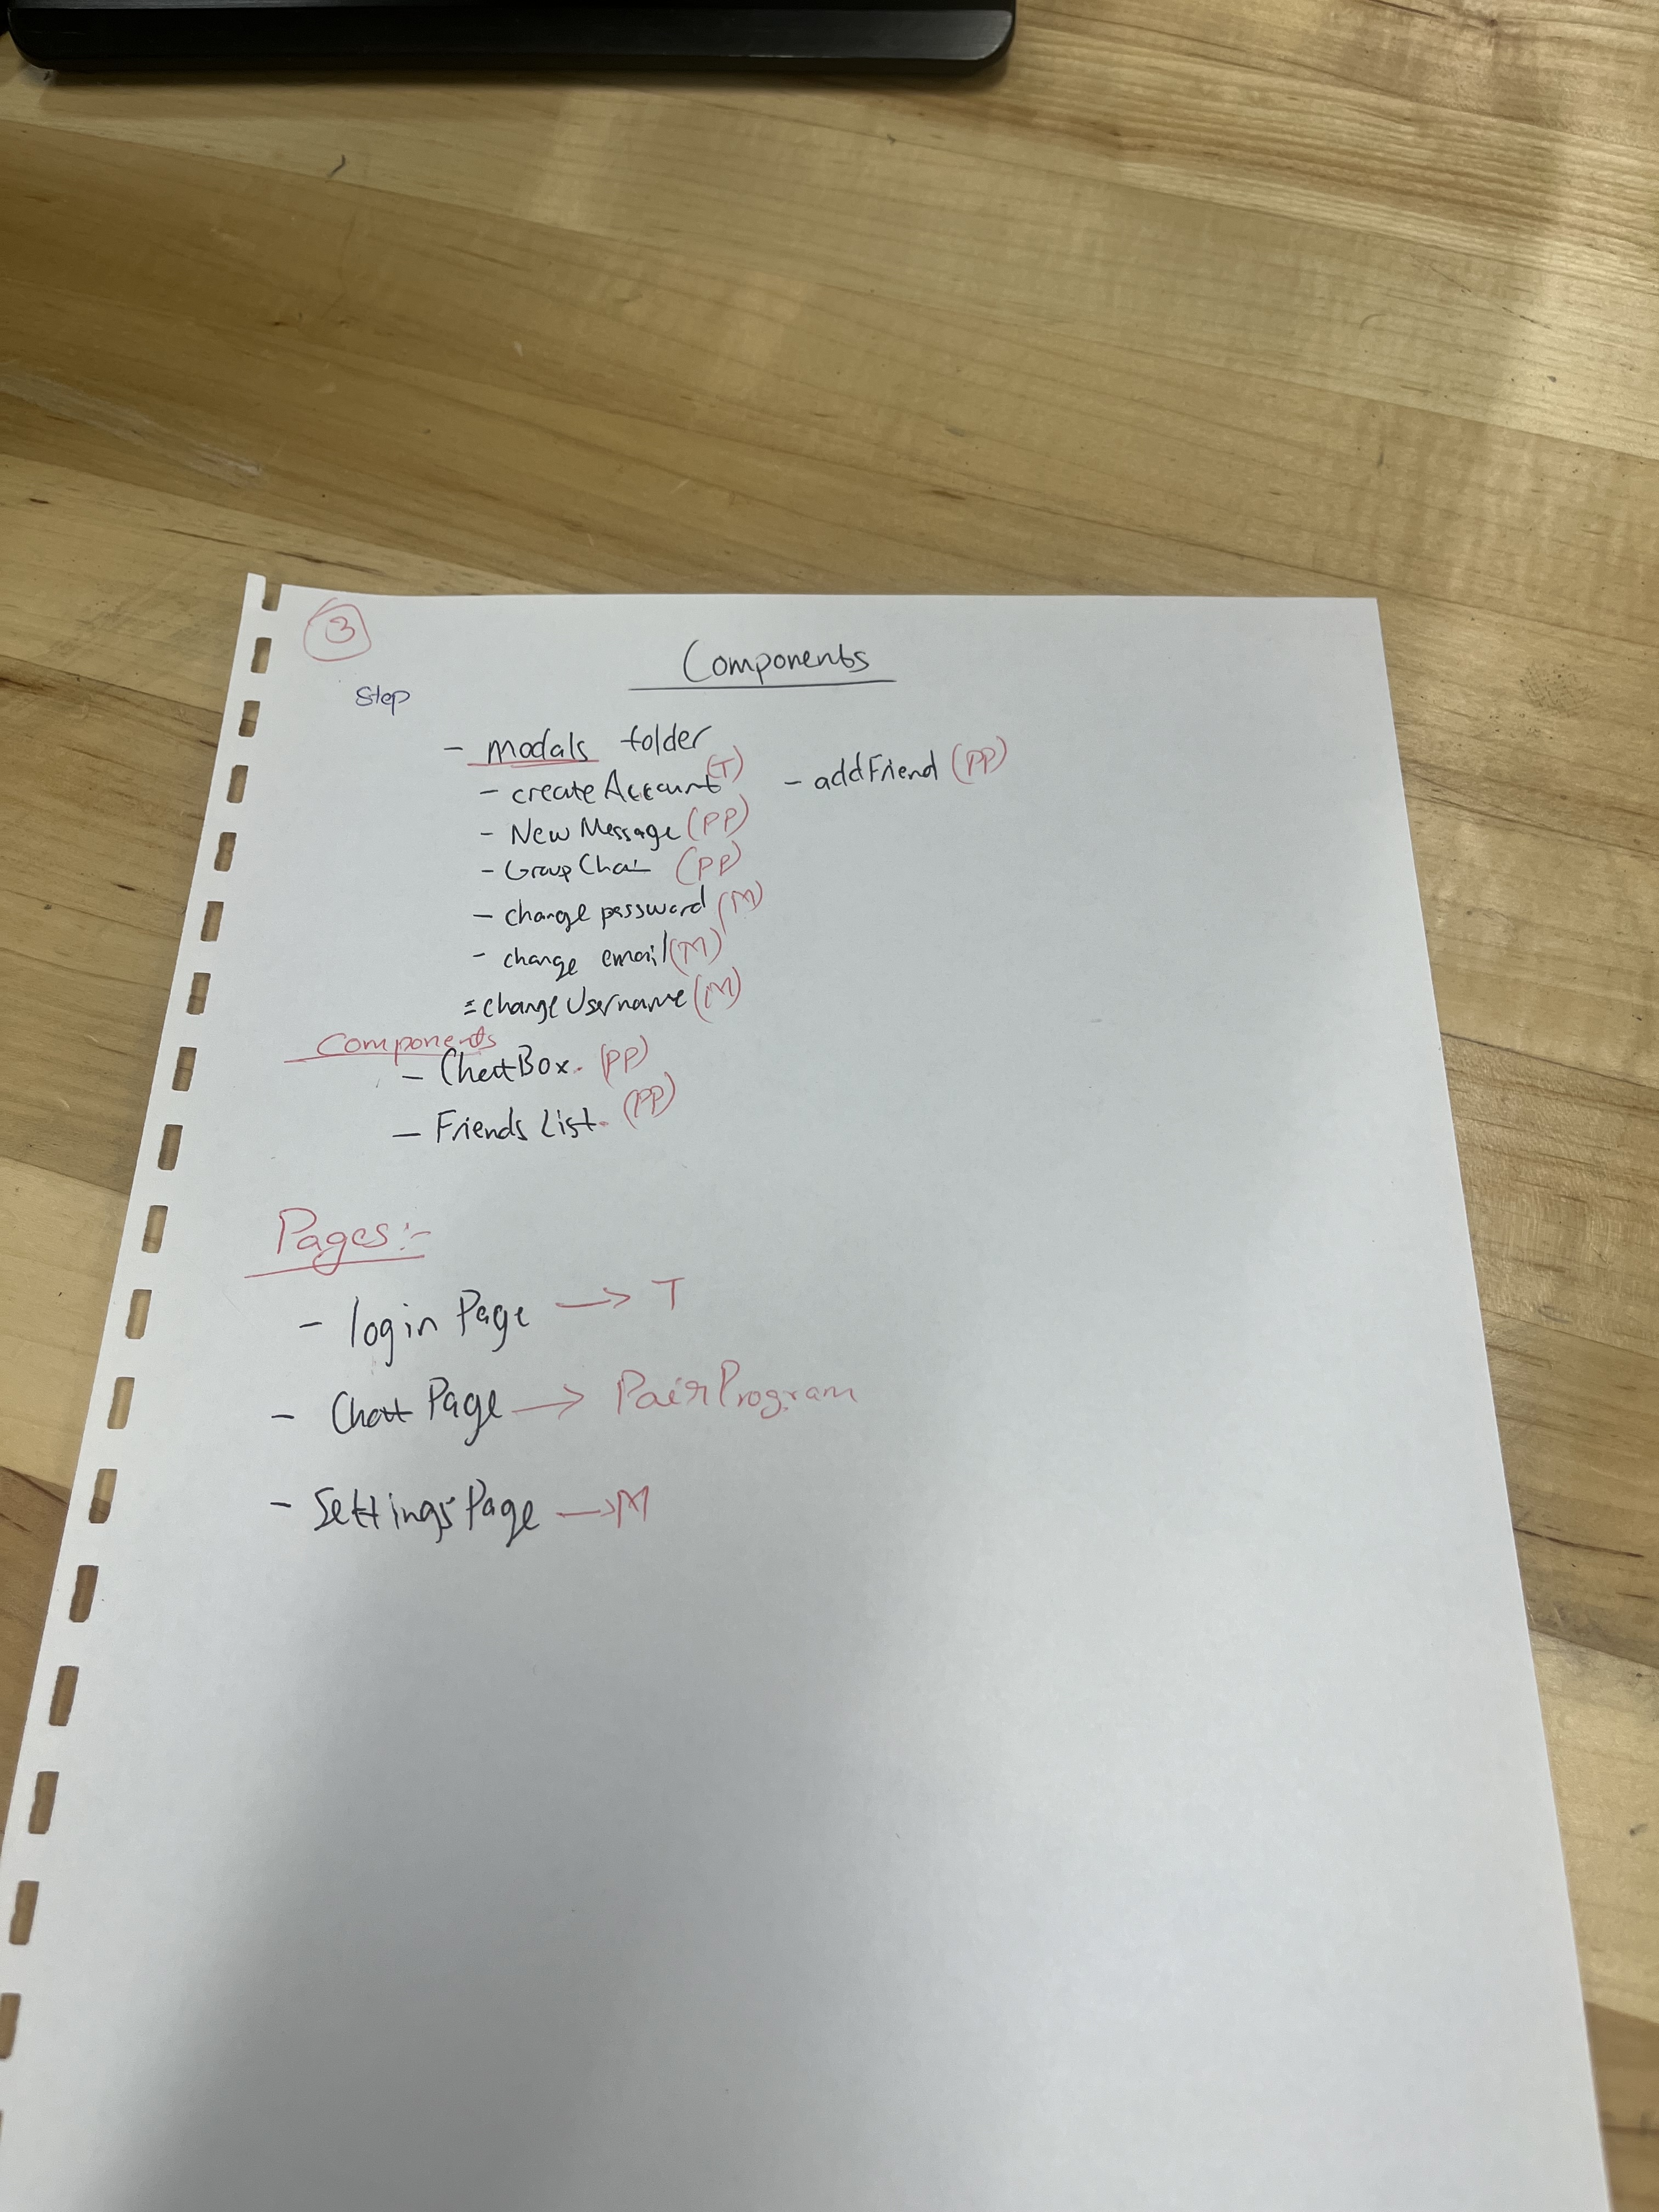 3
Components
Step
- modals folder
- createAccount (T) - addFriend (PP)
- New Message (PP)
- GroupChat (PP)
- change password (M)
- change email (M)
- changeUsername (M)
Components
- ChatBox. (PP)
- Friends List. (PP)
Pages:-
- login Page → T
- Chat Page → PairProgram
- Settings Page → M